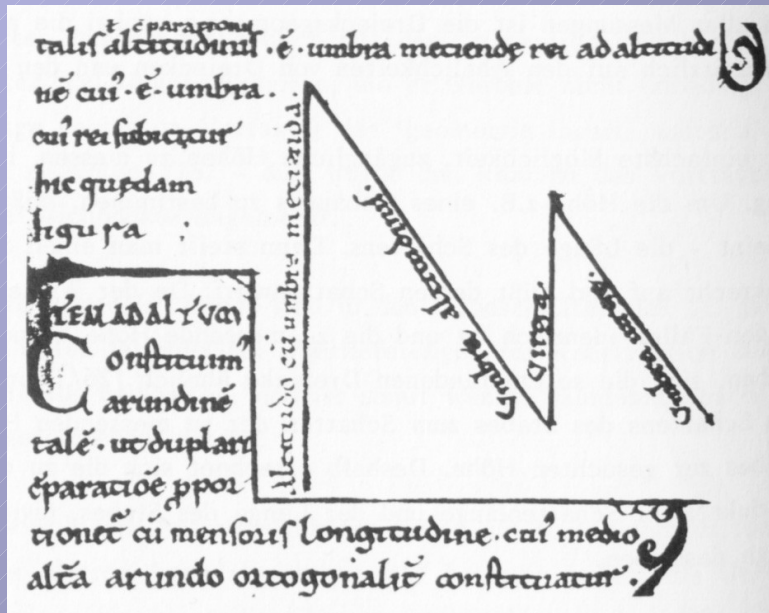 i. cõparationis
talis altitudinis · ẽ · umbra metiendę rei ad altitudi
nẽ cui⁹ · ẽ · umbra .
cui rei subicitur
hic quędam
figura .
ITEM AD ALTUM
Constituim⁹
arundinẽ
talẽ · ut
tionet̃ cũ mensoris longitudine · cui⁹ medio
alt̃a arundo ortogonalit̃ constituatur .
Altitudo cũ umbra metienda
Umbra altitudinis .
VIRGA
Umbra virgę .